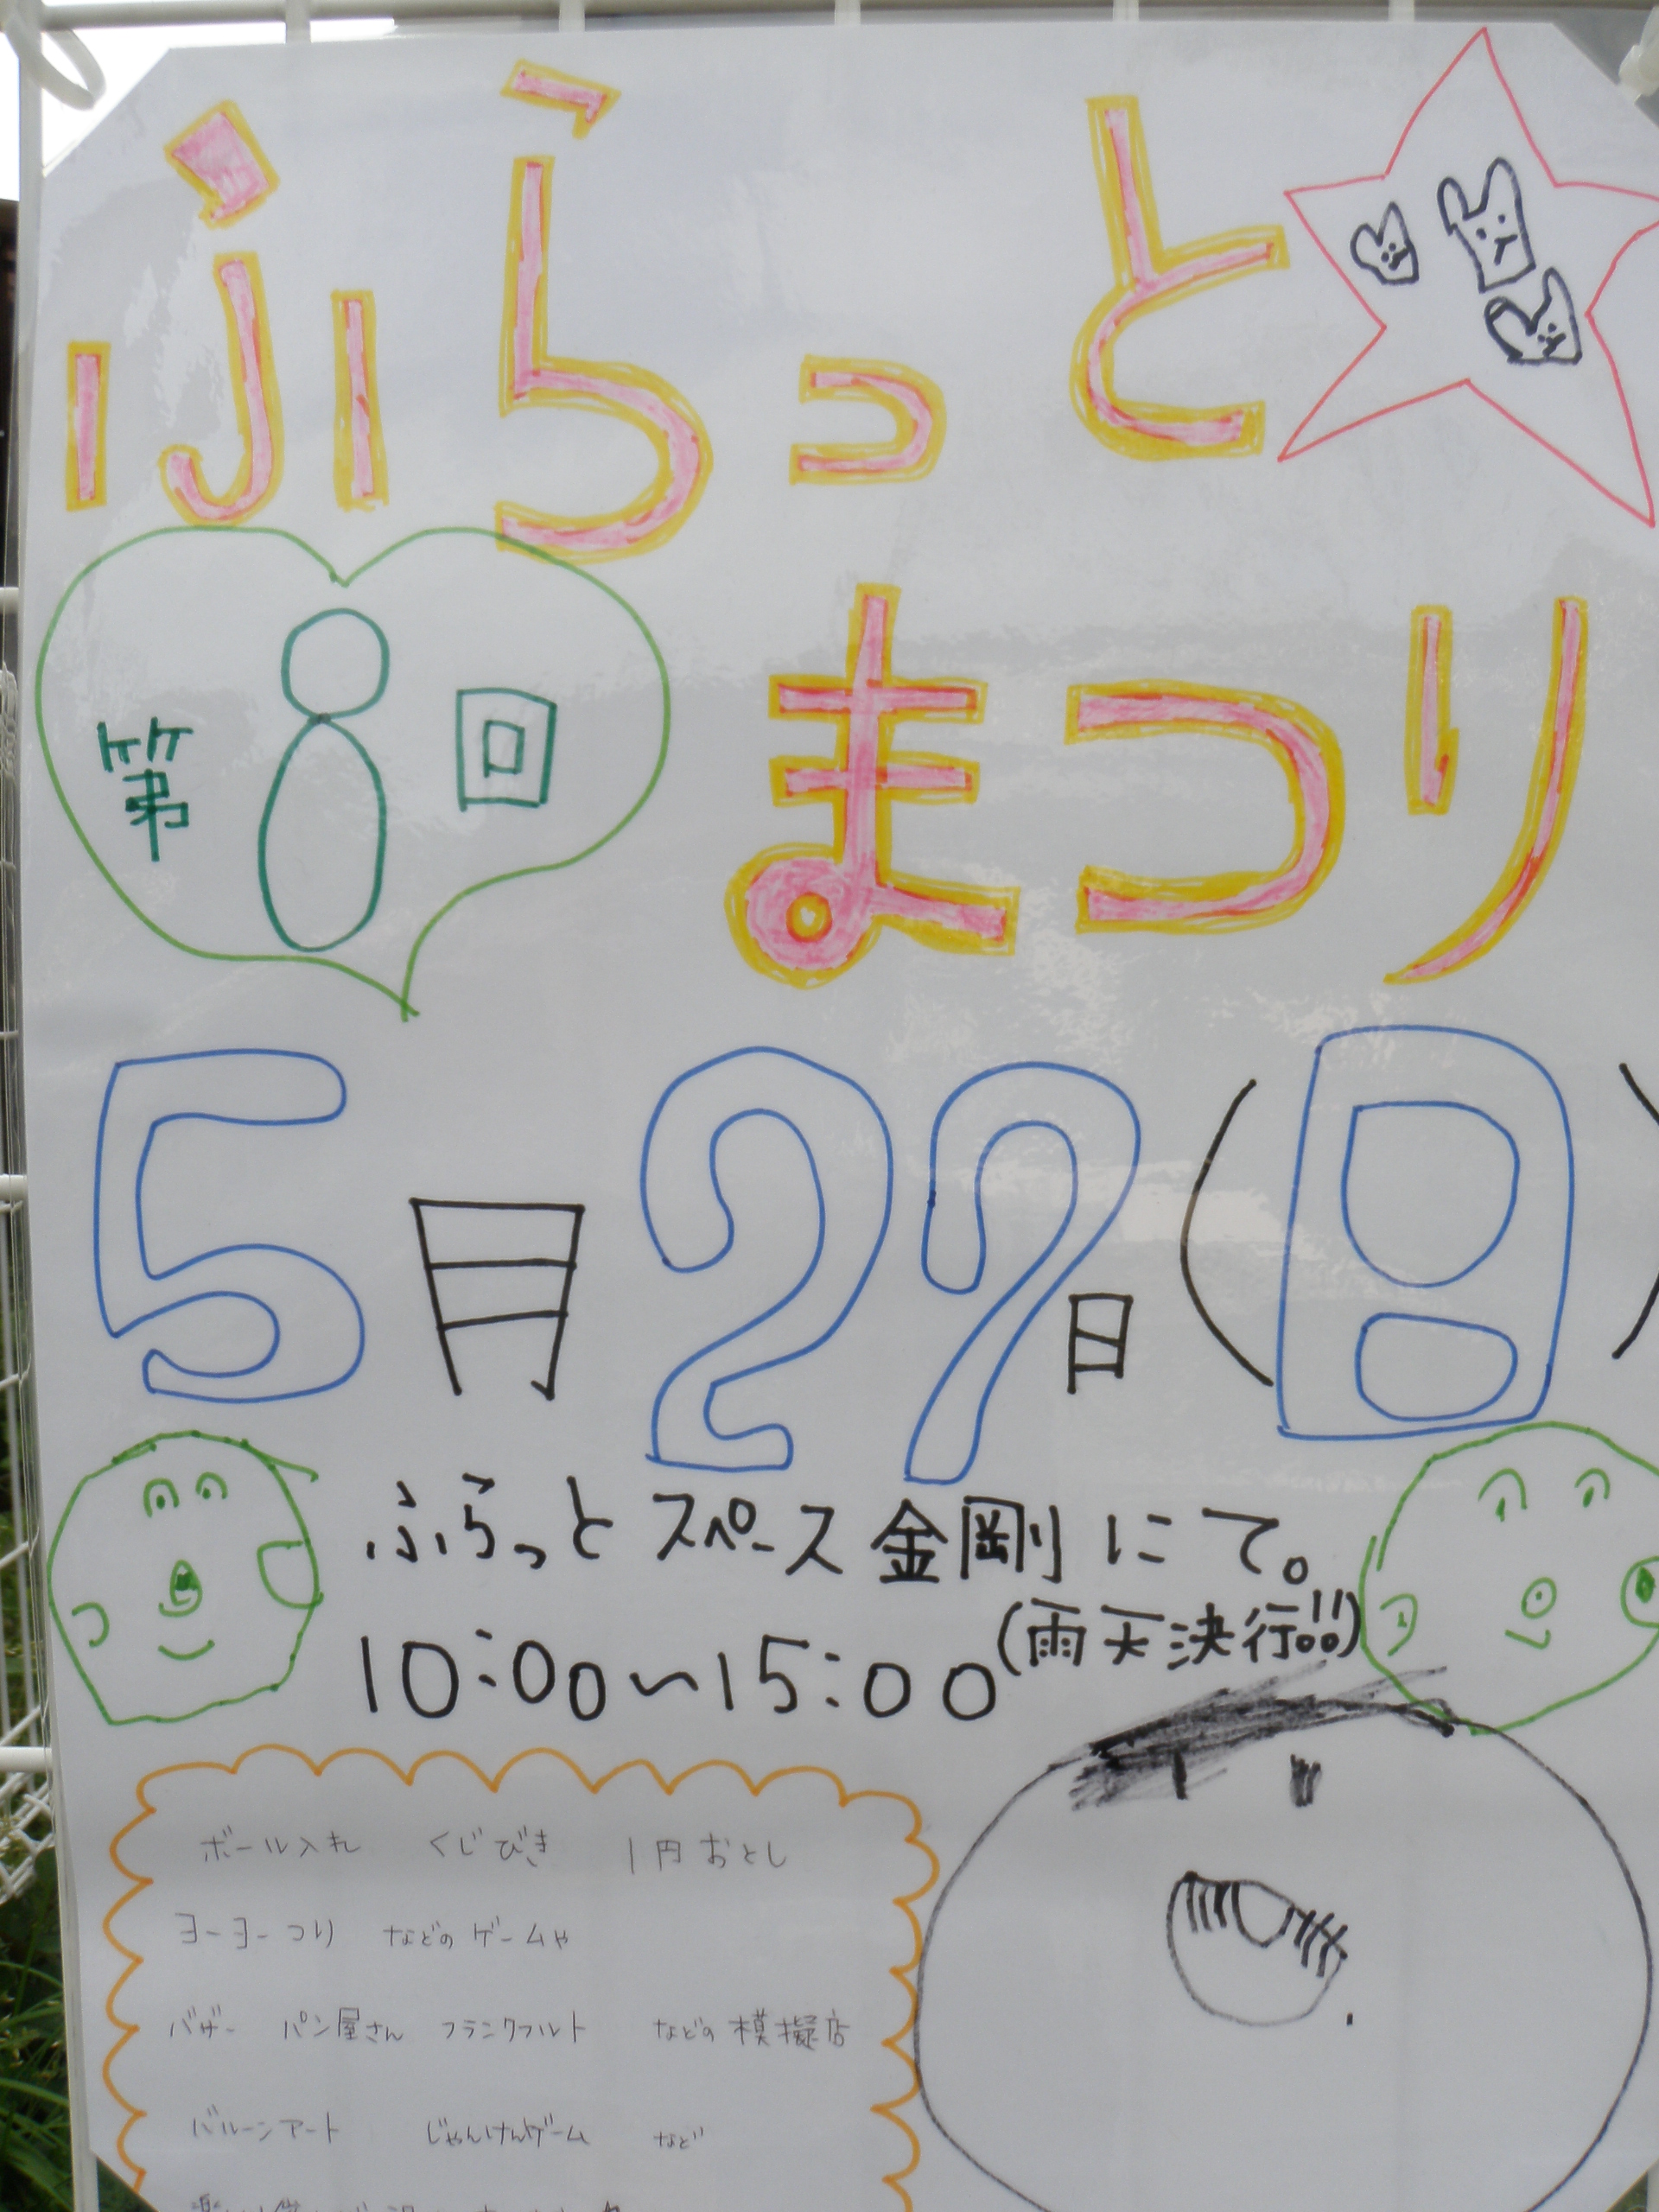 ふらっと
第8回
まつり
5月27日(日)
ふらっとスペース金剛にて。
(雨天決行!!)
10:00〜15:00
ボール入れ くじびき 1円おとし
ヨーヨーつり などのゲームや
バザー パン屋さん フランクフルト などの模擬店
バルーンアート じゃんけんゲーム など